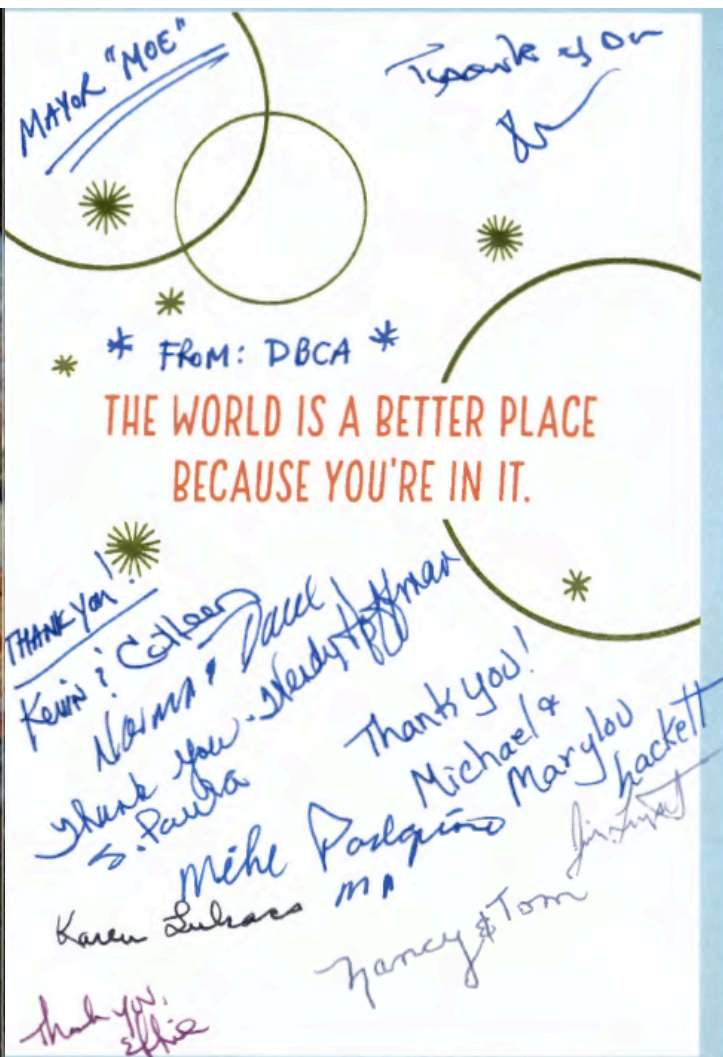 MAYOR "MOE"
Thank you
* FROM: DBCA *
THE WORLD IS A BETTER PLACE
BECAUSE YOU'RE IN IT.
THANK YOU!
Kevin & Colleen
Norma & Dave
Thank you - Wendy Hoffman
Thank you!
Michael &
Marylou
Lackett
S. Paula
Mike
Karen Lukacs
Nancy & Tom
Thank you,
Effie